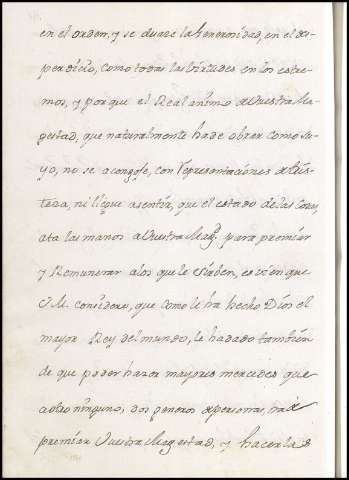 en el orden, y se durze la henerosidad, en el des-
perdicio, como todas las Virtudes en los estre-
mos, y porque el Real animo de Vuestra Ma-
gestad, que naturalmente hade obrar como su-
yo, no se acongoje, con Representaciones de Tris-
teza, ni llegue asentir, que el estado de las Cosas,
ata las manos a Vuestra Mag.d para premiar
y Remunerar alos que le Sirben, es vien que
V.M. considere, que como le ha hecho Dios el
mayor Rey del mundo, le hadado tambien
de que poder hazer mayores mercedes que
aotro ninguno, dos generos de personas, ha de
premiar Vuestra Magestad, y hacerlas